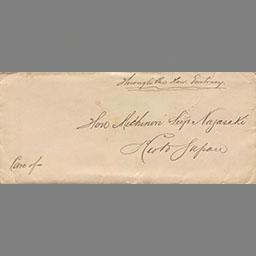 Through the Hon. 
Hon Methinori Suijo Nagasaki
Kioto Japan
Care of